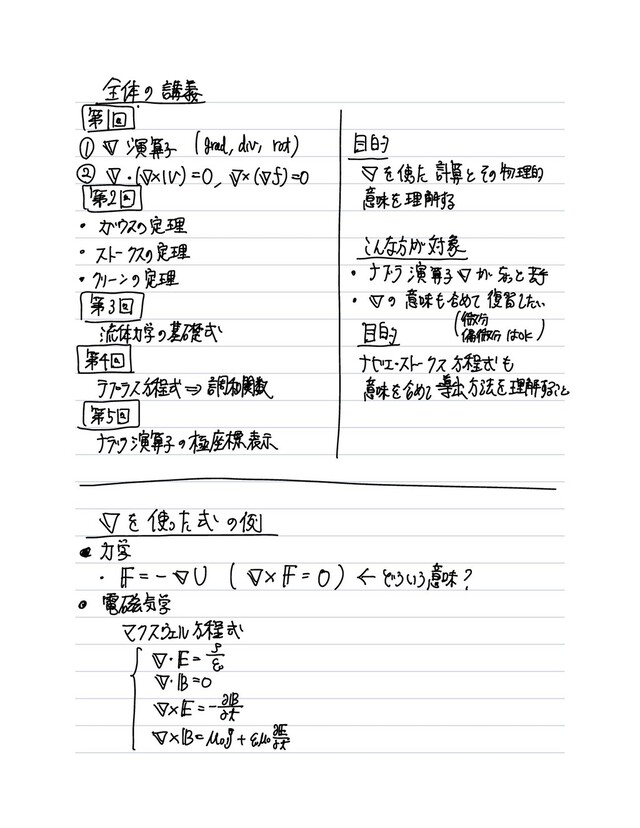 全体の講義
第1回
① ∇ 演算子 (grad, div, rot)
② ∇・(∇×V)=0, ∇×(∇f)=0
第2回
・ガウスの定理
・ストークスの定理
・グリーンの定理
第3回
流体力学の基礎式
第4回
ラプラス方程式⇒調和関数
第5回
ナブラ演算子の極座標表示
目的
∇を使った計算とその物理的
意味を理解する
こんな方が対象
・ナブラ演算子∇がちょっと苦手
・∇の意味も含めて復習したい
(微分
偏微分はOK)
目的
ナビエ・ストークス方程式も
意味を含めて導出方法を理解すること
∇を使った式の例
● 力学
・F=-∇U (∇×F=0) ←どういう意味?
● 電磁気学
マクスウェル方程式
∇・E=ρ/ε₀
∇・B=0
∇×E=-∂B/∂t
∇×B=μ₀j+εμ₀∂E/∂t